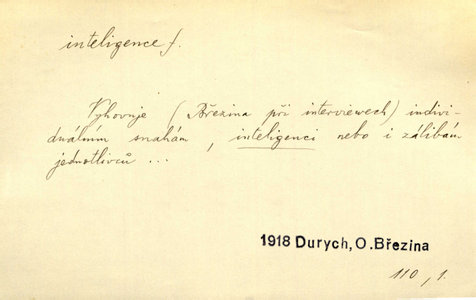 inteligence f.
Vyhovuje (Březina při interviewech) indivi-
duálním snahám, inteligenci nebo i zálibám
jednotlivců ...
1918 Durych, O. Březina
110, 1.